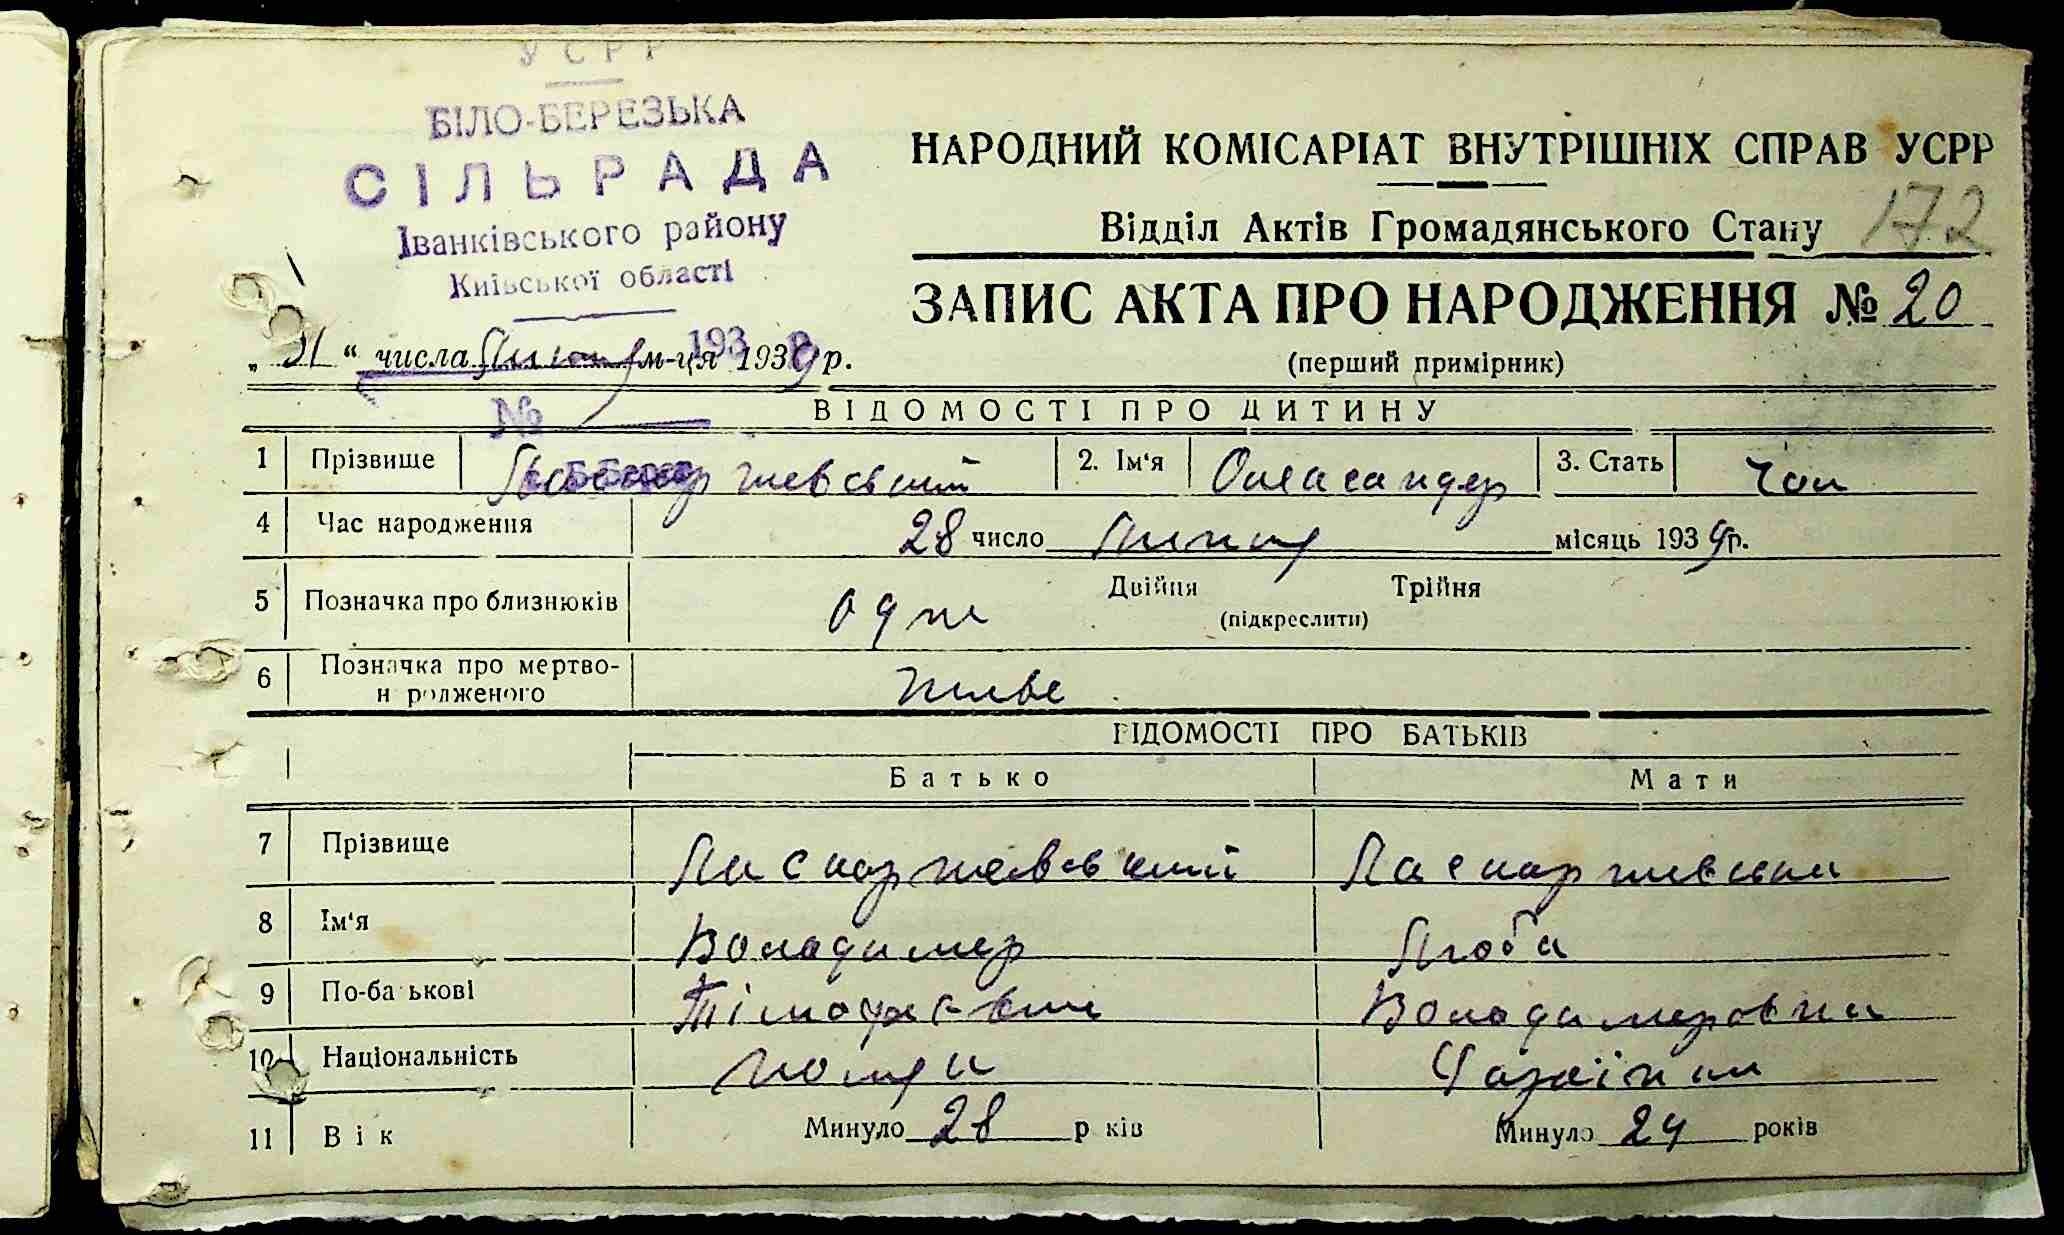 УСРР
БІЛО-БЕРЕЗЬКА
СІЛЬРАДА
Іванківського району
Київської області
НАРОДНИЙ КОМІСАРІАТ ВНУТРІШНІХ СПРАВ УСРР
Відділ Актів Громадянського Стану 172
ЗАПИС АКТА ПРО НАРОДЖЕННЯ № 20
(перший примірник)
„31“ числа Липня м-ця 193 1939 р.
№
ВІДОМОСТІ ПРО ДИТИНУ
1 Прізвище 2. Ім'я Олександер 3. Стать Чол
4 Час народження 28 число Липня місяць 1939 р.
5 Позначка про близнюків одне Двійня Трійня
(підкреслити)
6 Позначка про мертво-
н родженого живе
ВІДОМОСТІ ПРО БАТЬКІВ
Батько Мати
7 Прізвище Паскаржевський Паскаржевська
8 Ім'я Володимер Люба
9 По-ба ькові Тімофеєвич Володимеровна
10 Національність поляк Українка
11 Вік Минуло 28 р ків Минуло 24 років